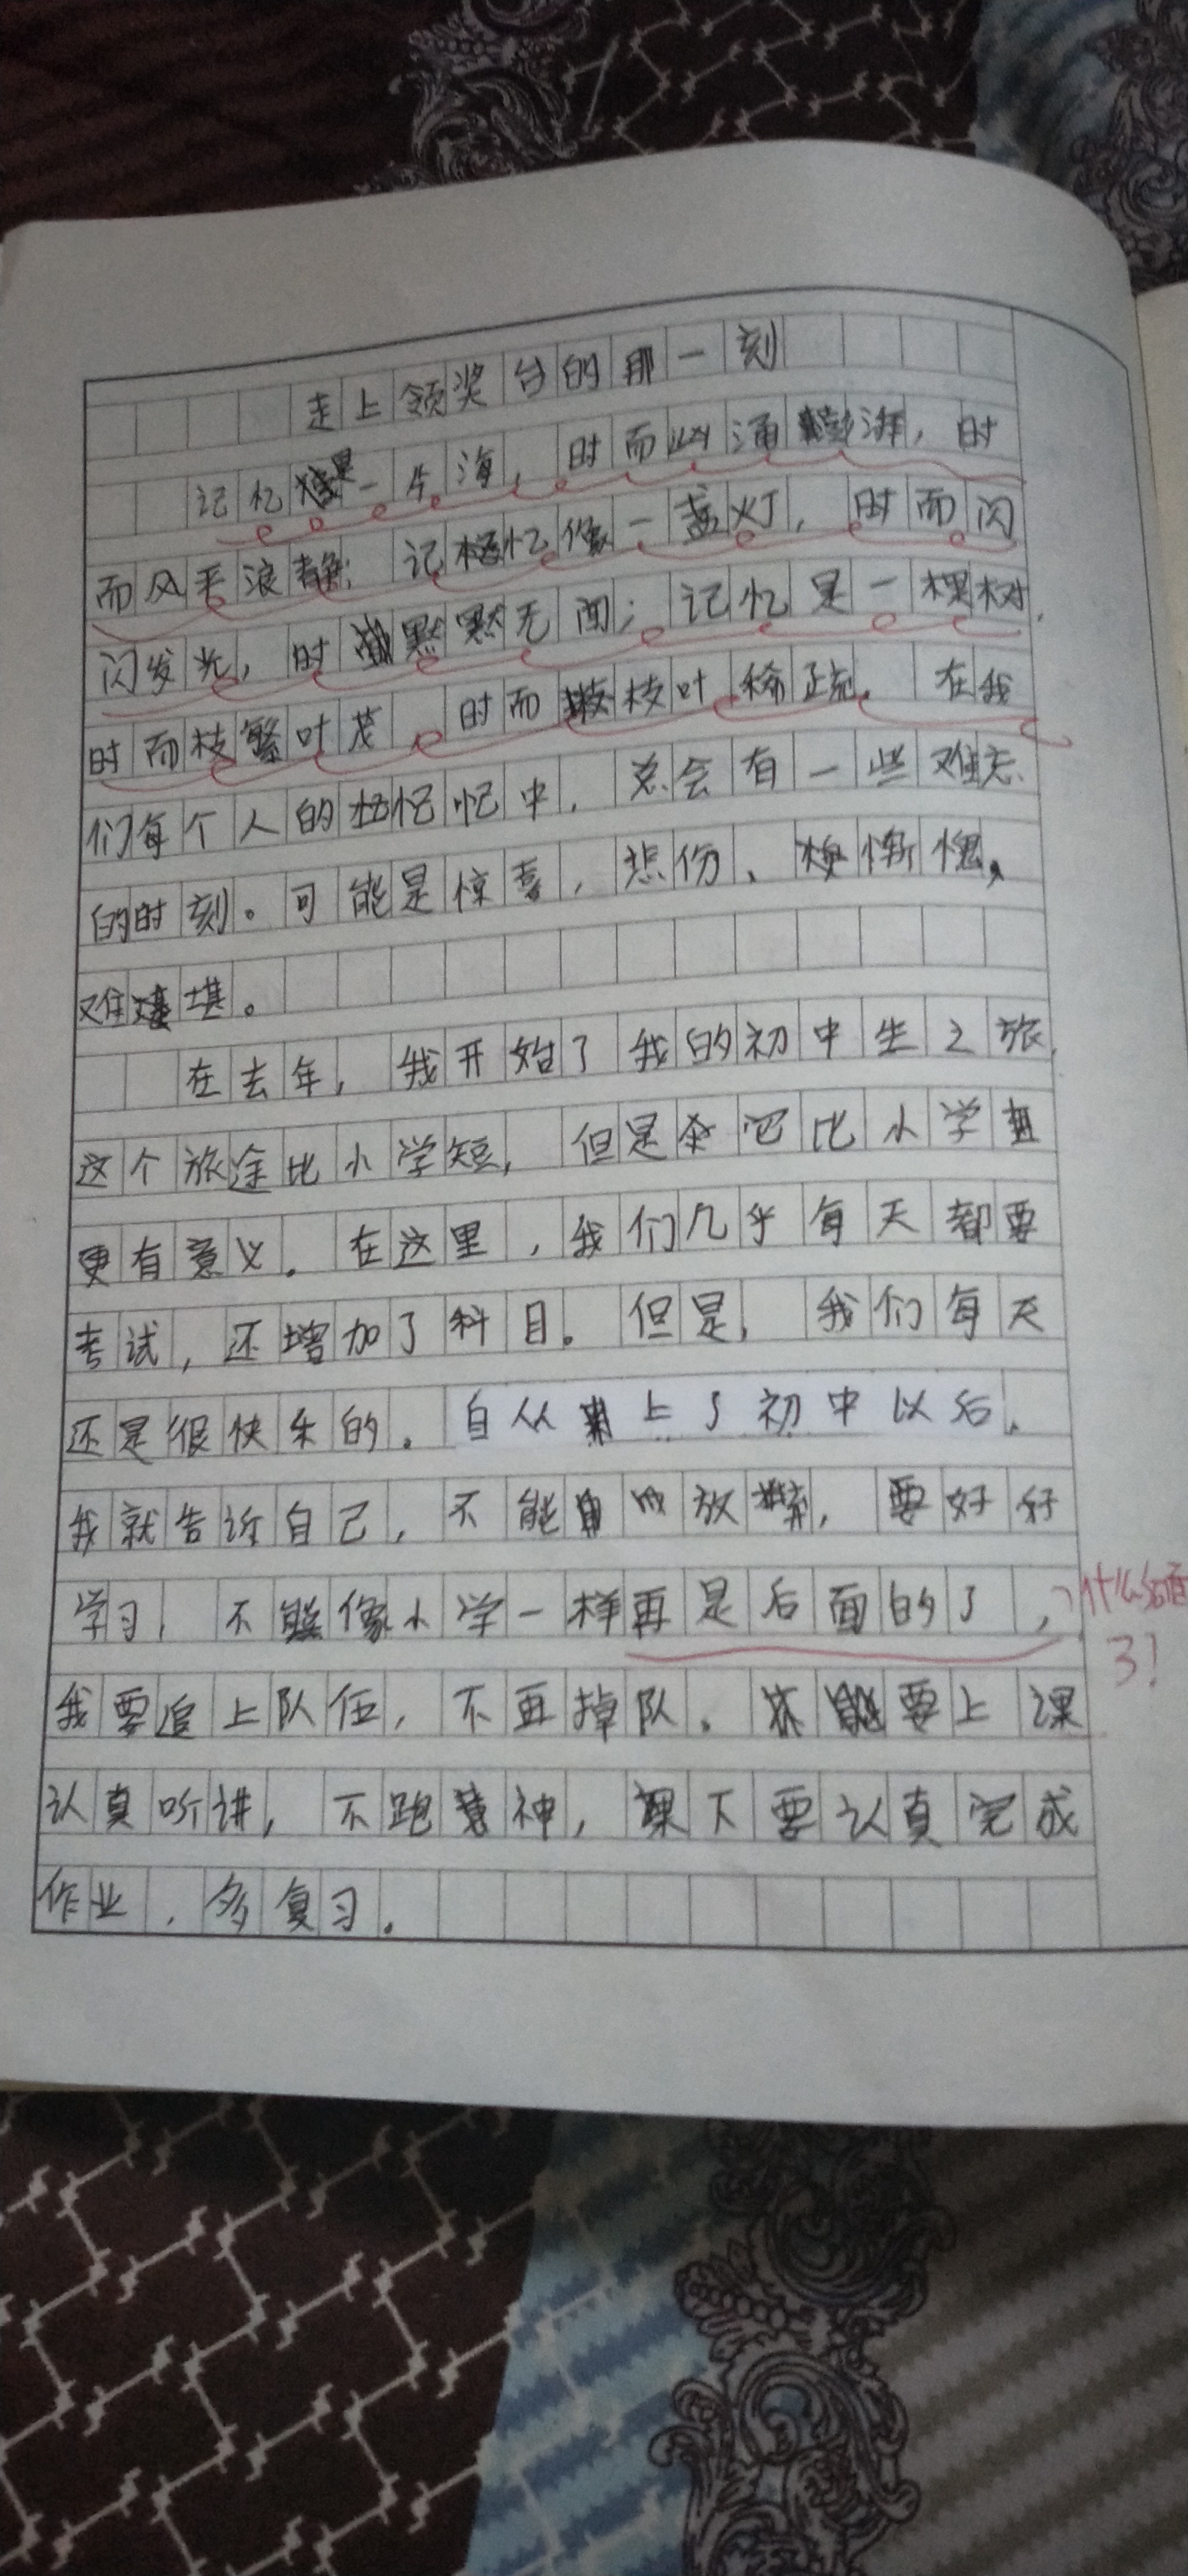 走上领奖台的那一刻
记忆是一片海，时而汹涌澎湃，时
而风平浪静；记忆像一盏灯，时而闪
闪发光，时而默默无闻；记忆是一棵树，
时而枝繁叶茂，时而枝叶稀疏。在我
们每个人的记忆中，总会有一些难忘
的时刻。可能是惊喜，悲伤、惭愧，
难堪。
在去年，我开始了我的初中生之旅，
这个旅途比小学短，但是它比小学
更有意义。在这里，我们几乎每天都要
考试，还增加了科目。但是，我们每天
还是很快乐的。自从上了初中以后，
我就告诉自己，不能放弃，要好好
学习，不能像小学一样再是后面的了，
什么后面
了！
我要追上队伍，不再掉队。要上课
认真听讲，不跑神，课下要认真完成
作业，多复习。